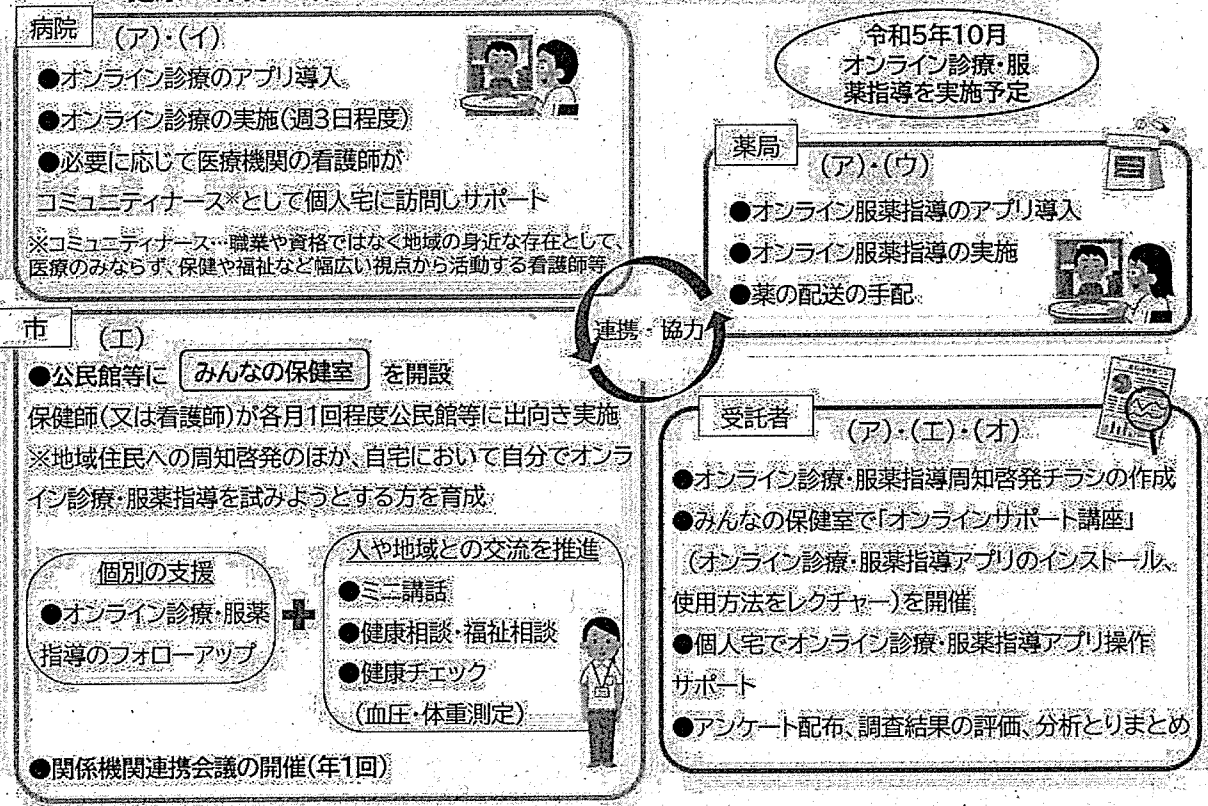 病院
(ア)・(イ)
●オンライン診療のアプリ導入
●オンライン診療の実施(週3日程度)
●必要に応じて医療機関の看護師が
コミュニティナース※として個人宅に訪問しサポート
※コミュニティナース…職業や資格ではなく地域の身近な存在として、
医療のみならず、保健や福祉など幅広い視点から活動する看護師等
令和5年10月
オンライン診療・服
薬指導を実施予定
薬局
(ア)・(ウ)
●オンライン服薬指導のアプリ導入
●オンライン服薬指導の実施
●薬の配送の手配
連携・協力
市
(エ)
●公民館等に みんなの保健室 を開設
保健師(又は看護師)が各月1回程度公民館等に出向き実施
※地域住民への周知啓発のほか、自宅において自分でオンラ
イン診療・服薬指導を試みようとする方を育成
個別の支援
●オンライン診療・服薬
指導のフォローアップ
人や地域との交流を推進
●ミニ講話
●健康相談・福祉相談
●健康チェック
(血圧・体重測定)
●関係機関連携会議の開催(年1回)
受託者
(ア)・(エ)・(オ)
●オンライン診療・服薬指導周知啓発チラシの作成
●みんなの保健室で「オンラインサポート講座」
(オンライン診療・服薬指導アプリのインストール、
使用方法をレクチャー)を開催
●個人宅でオンライン診療・服薬指導アプリ操作
サポート
●アンケート配布、調査結果の評価、分析とりまとめ